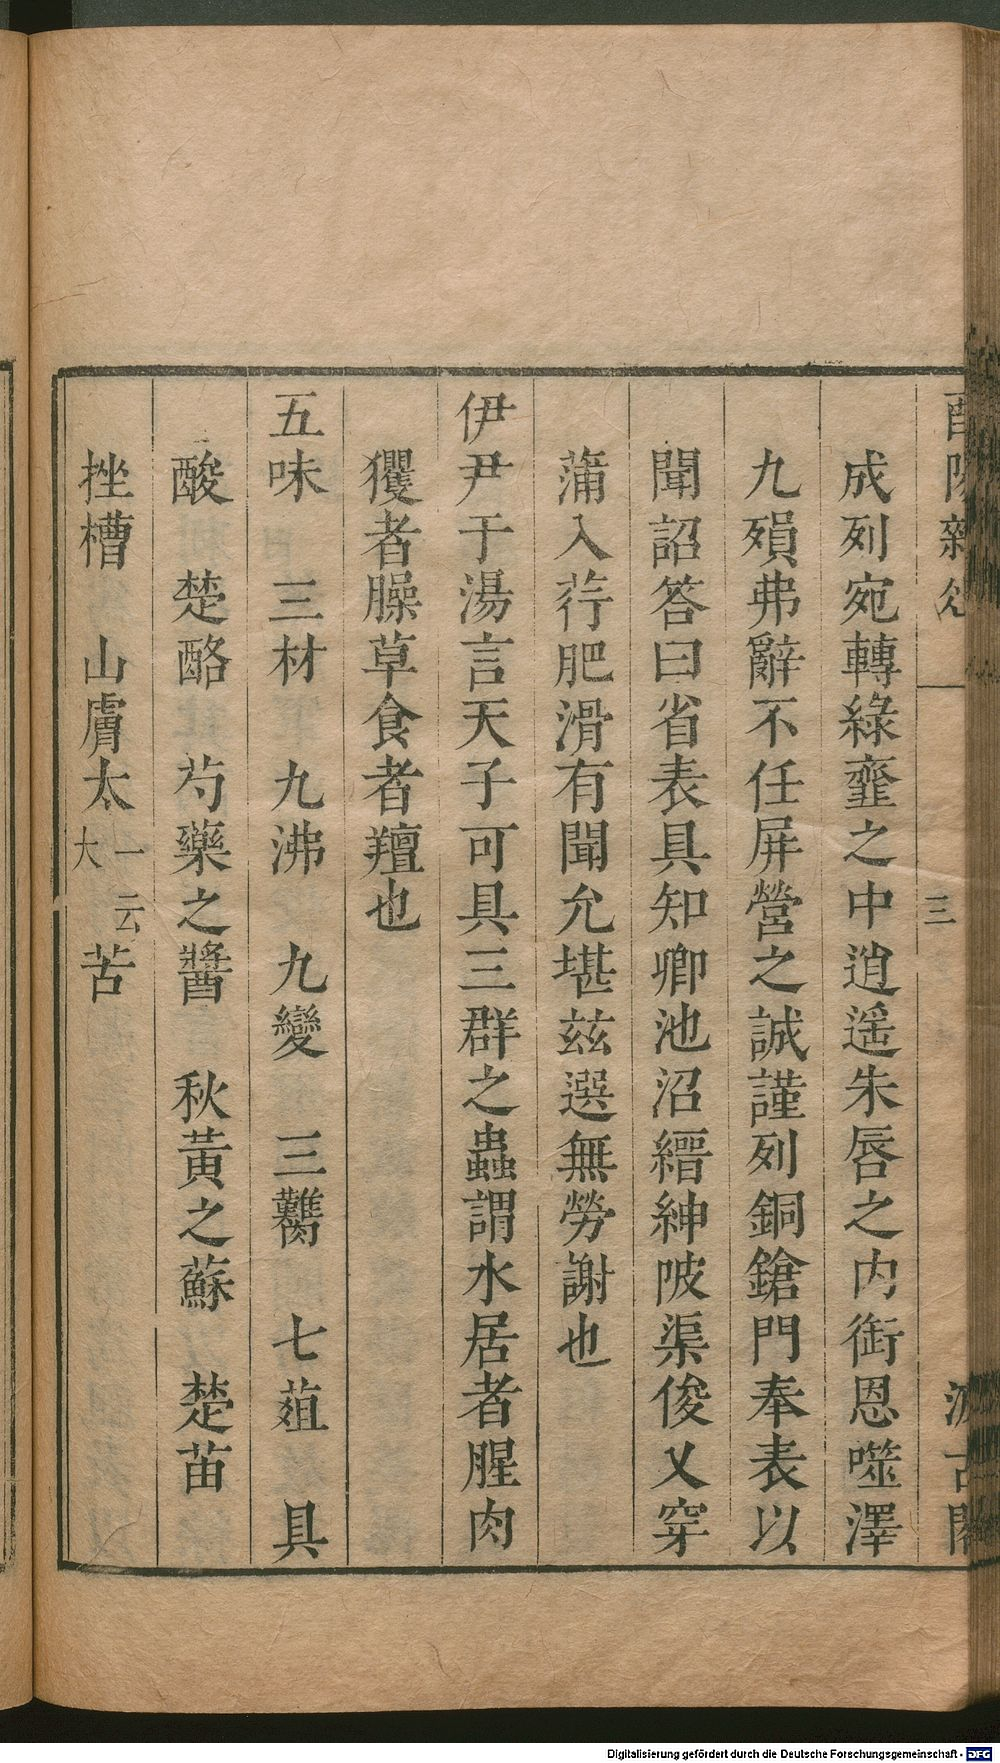 三
成列宛轉綠虀之中逍遥朱唇之内銜恩噬澤
九殞弗辭不任屏營之誠謹列銅鎗門奉表以
聞詔答曰省表具知卿池沼縉紳陂渠俊乂穿
蒲入荇肥滑有聞允堪茲選無勞謝也
伊尹干湯言天子可具三群之蟲謂水居者腥肉
玃者臊草食者羶也
五味　三材　九沸　九變　三臡　七葅　具
酸　楚酪　芍藥之醬　秋黃之蘇　楚苗
挫槽　山膚太一云大苦
Digitalisierung gefördert durch die Deutsche Forschungsgemeinschaft - DFG